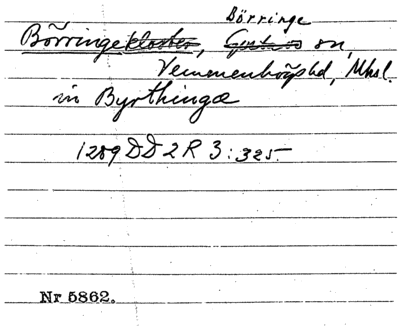 Börringe
Börringekloster, sn,
Vemmenhögs hd, Mhsl.
in Byrthingæ
1289 DD 2 R 3: 325.
Nr 5862.